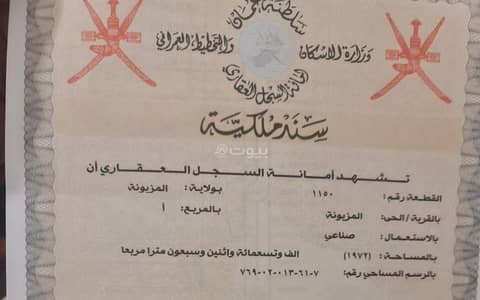 سلطنة عمان
وزارة الاسكان والتخطيط العمراني
أمانة السجل العقاري
سند ملكية
بيوت
تشهد أمانة السجل العقاري أن
القطعة رقم: ١١٥٠ بولاية: المزيونة
بالقرية / الحى: المزيونة بالمربع: أ
بالاستعمال: صناعي
بالمساحة: (١٩٧٢) الف وتسعمائة واثنين وسبعون مترا مربعا
بالرسم المساحي رقم: ٧-٦١-٠١٣-٠٠٢-٧٦٩